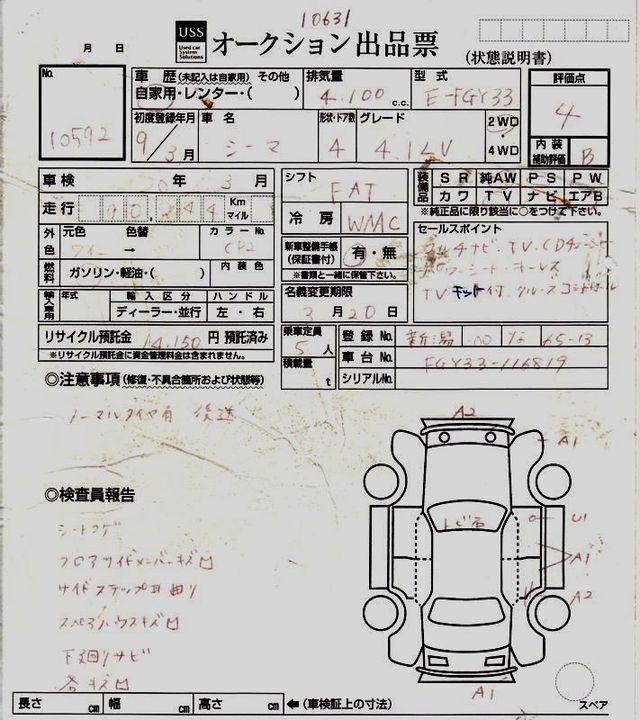 10631
USS
Used car
System
Solutions
オークション出品票
(状態説明書)
月 日
No.
10592
車歴(未記入は自家用) その他
自家用・レンター・( )
排気量
4,100 c.c.
型式
E-FGY33
評価点
4
初度登録年月
9/3月
車名
シーマ
形状・ドア数
4
グレード
4.1LV
2WD
・
4WD
内装
補助評価
B
車検
20年3月
走行
90,244
Km
マイル
シフト
FAT
冷房
WAC
装備品
SR 純AW PS PW
カワ TV ナビ エアB
※純正品に限り該当に○をつけて下さい。
外色
元色 色替
カラーNo.
→
燃料
ガソリン・軽油・( )
内装色
新車整備手帳
(保証書付)
有・無
※書類と一緒に保管下さい。
セールスポイント
マルチナビ・TV・CDチェンジャー
パワーシート・キーレス
TVキット付 クルーズコントロール
輸入車用
年式
輸入区分
ハンドル
ディーラー・並行
左・右
名義変更期限
3月20日
リサイクル預託金 14,150円 預託済み
※リサイクル預託金に資金管理料金は含まれません。
乗車定員
5人
積載量
t
登録No.
新潟 な 65-13
車台No.
FGY33-116819
シリアルNo.
◎注意事項(修復・不具合箇所および状態等)
ノーマルタイヤ有 後送
◎検査員報告
シートコゲ
フロアサイドメンバーキズ凹
サイドステップ耳曲り
スペアハウスキズ凹
下廻りサビ
各キズ凹
A2
A1
トビ石
U1
A1
A2
A1
スペア
長さ cm 幅 cm 高さ cm ←(車検証上の寸法)